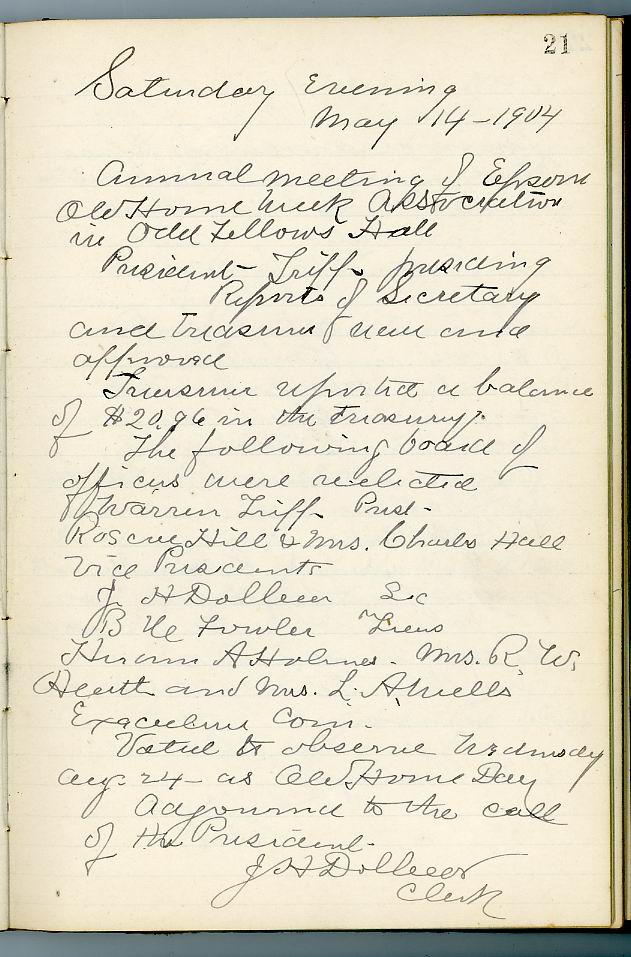 21
Saturday Evening
May 14-1904
Annual meeting of Epsom
Old Home Week Association
in Odd Fellows Hall
President Tripp presiding
Reports of Secretary
and treasurer read and
approved
Treasurer reported a balance
of $20.96 in the treasury.
The following board of
officers were reelected
Warren Tripp Pres.
Roscoe Hill & Mrs. Charles Hall
Vice Presidents
J. H Dolbeer Sec
B M Fowler Treas
Hiram A Holmes. Mrs. R. W.
Heath and Mrs. L. A. Wells
Executive Com.
Voted to observe Wednesday
Aug. 24 - as Old Home Day
Adjourned to the call
of the President.
J H Dolbeer
Clerk